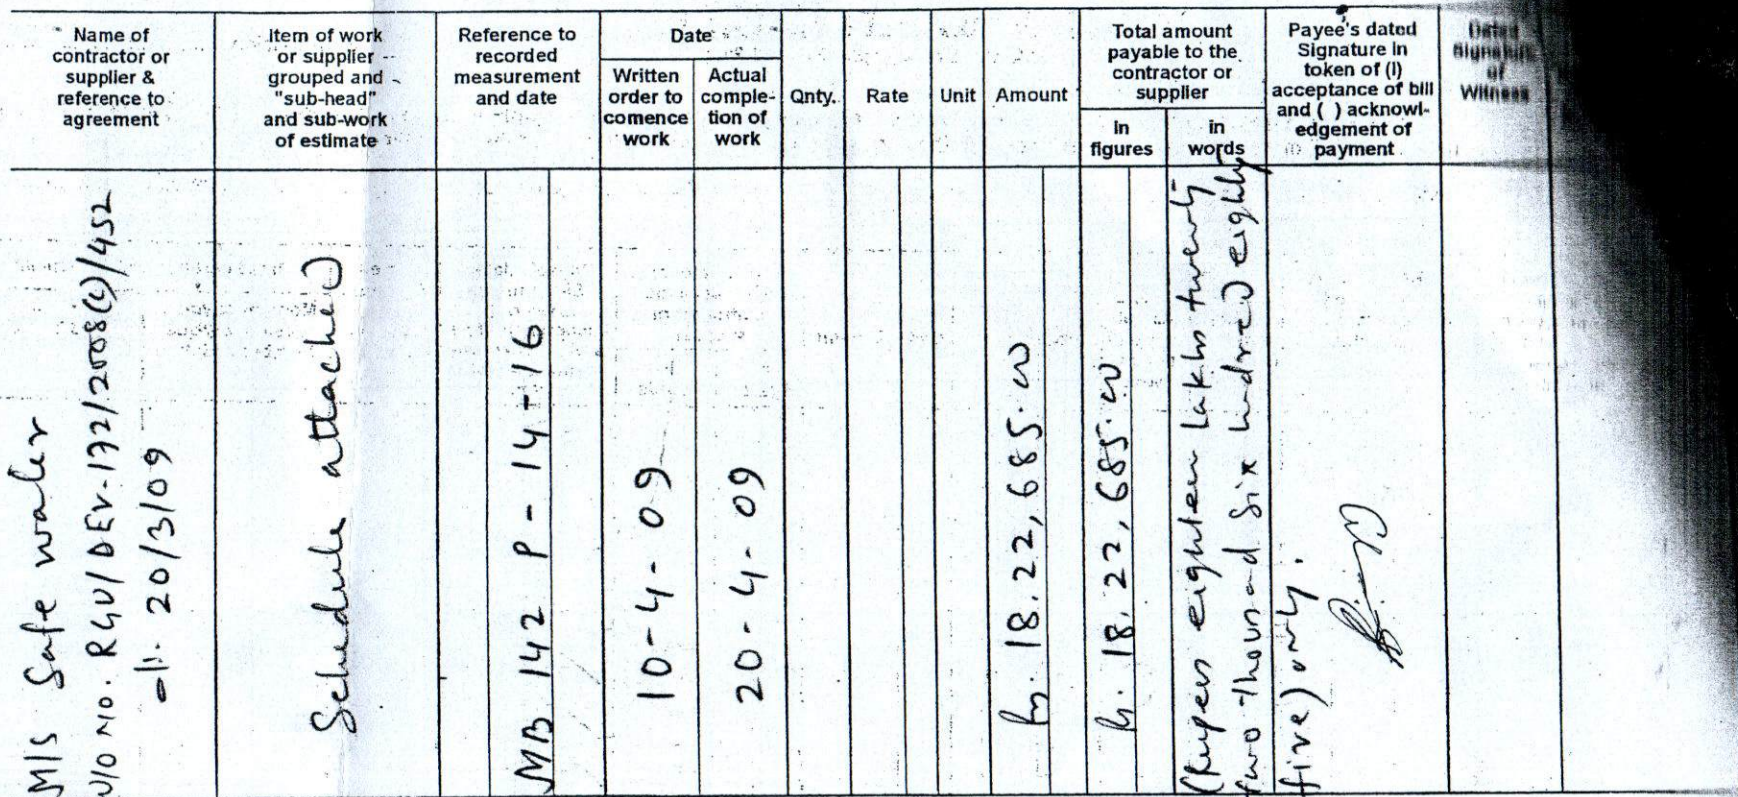 Name of
contractor or
supplier &
reference to
agreement
Item of work
or supplier
grouped and
"sub-head"
and sub-work
of estimate
Reference to
recorded
measurement
and date
Date
Written
order to
comence
work
Actual
comple-
tion of
work
Qnty.
Rate
Unit
Amount
Total amount
payable to the
contractor or
supplier
in
figures
in
words
Payee's dated
Signature in
token of (I)
acceptance of bill
and ( ) acknowl-
edgement of
payment
Dated
Signature
of
Witness
M/S Safe water
W/O NO. RGU/DEV-172/2008(C)/452
dt. 20/3/09
Schedule attached
MB 142 P-14-16
10-4-09
20-4-09
Rs. 18,22,685.00
Rs. 18,22,685.00
(Rupees eighteen lakhs twenty
two thousand six hundred eighty
five) only.